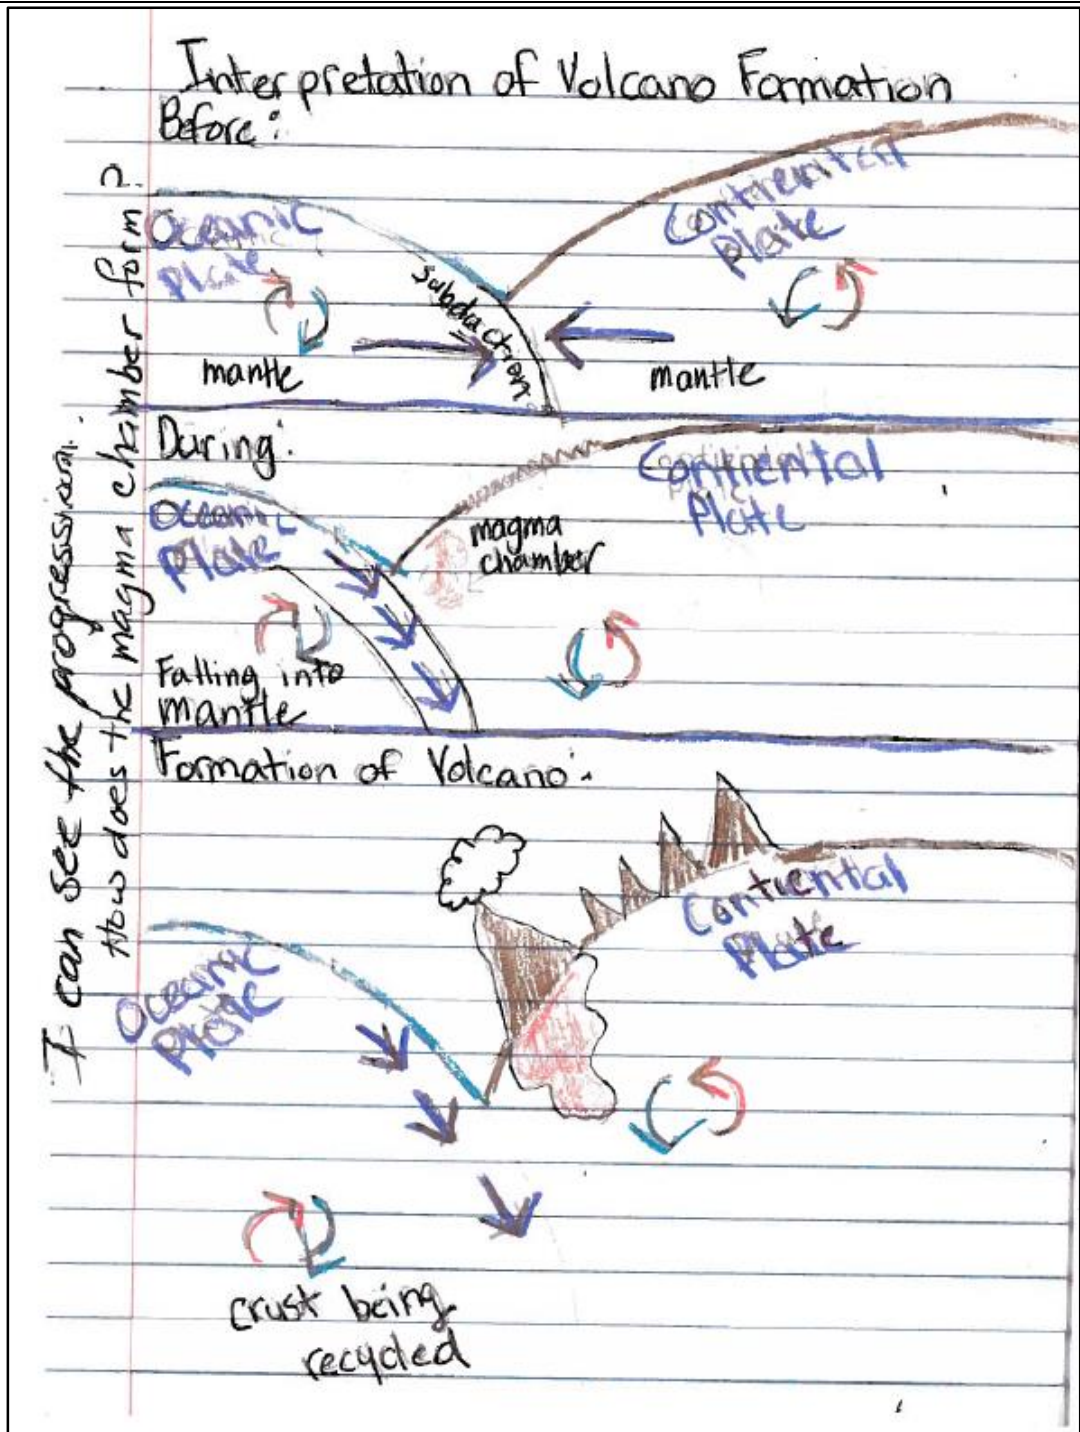 Interpretation of Volcano Formation
Before:
Oceanic
Plate
Continental
Plate
subduction
mantle
mantle
During:
Oceanic
Plate
Contiental
Plate
magma
chamber
Falling into
mantle
Formation of Volcano:
Contiental
Plate
Oceanic
Plate
crust being
recycled
I can see the progression.
How does the magma chamber form?